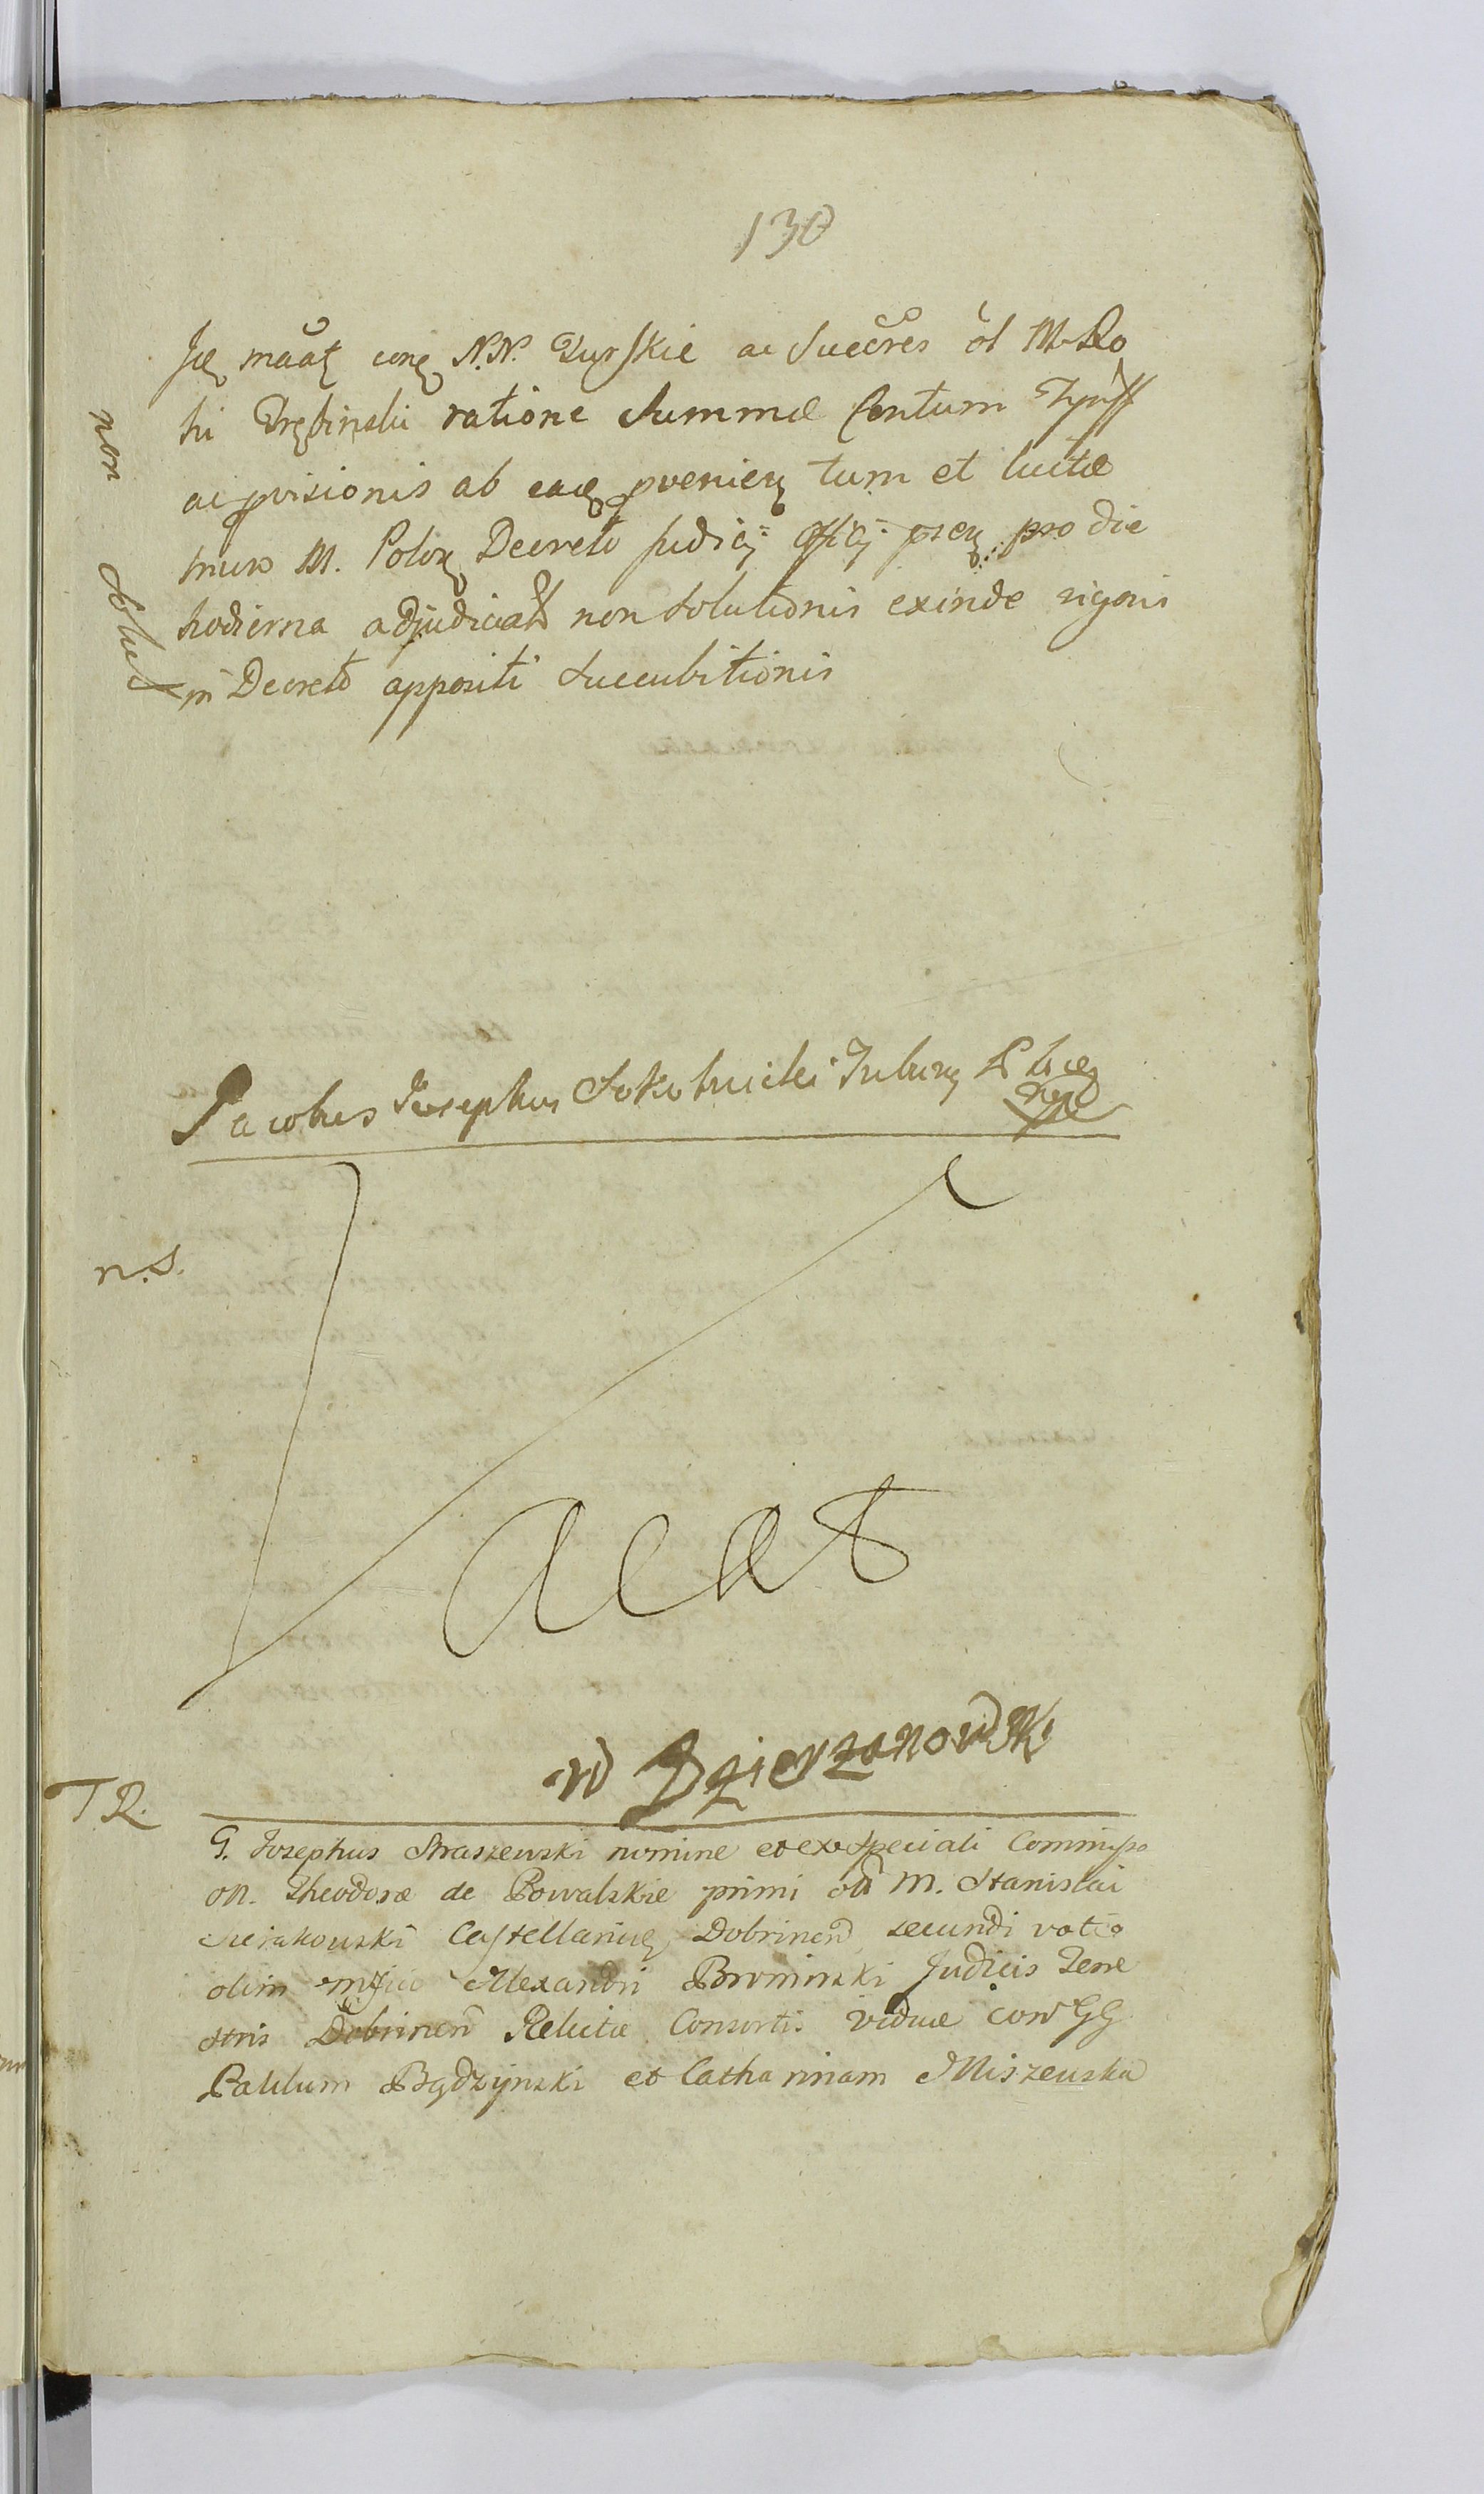 130
N.N. Turskie ac Succres ol M. Ro
chi Trębinski ratione Summæ Centum Tynff
ac pvisionis ab pvenien tum et luitæ
trium M. Polon Decreto Judicij Officij psen pro die
hodierna adjudicat non solutionis exinde rigoris
in Decreto appositi succubitionis
non solut
Jacobus Josephus Sokolnicki
n.s.
Vacat
Dzierzanowski
TR.
G. Josephus Straszewski nomine et ex speciali Commisso
M. Theodoræ de Powalskie primi olim M. Stanislai
Sierakowski Castellanic Dobrinen secundi voto
olim Mfici Alexandri Broninski Judicis Terre
stris Dobrinen Relictæ Consortis viduæ con GG
Paulum Bądzynski et Catharinam Miszewska